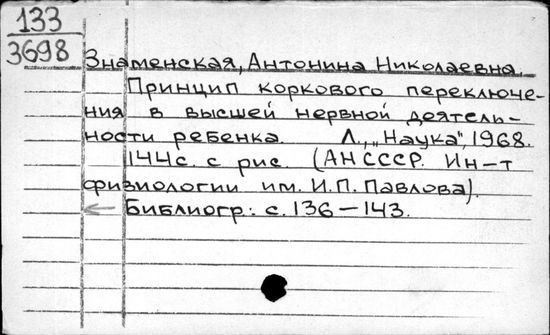 133
3698
Знаменская, Антонина Николаевна.
Принцип коркового переключе-
ния в высшей нервной деятель-
ности ребенка. Л., „Наука", 1968.
144с. с рис. (АН СССР. Ин-т
физиологии им. И.П. Павлова).
Библиогр.: с. 136-143.